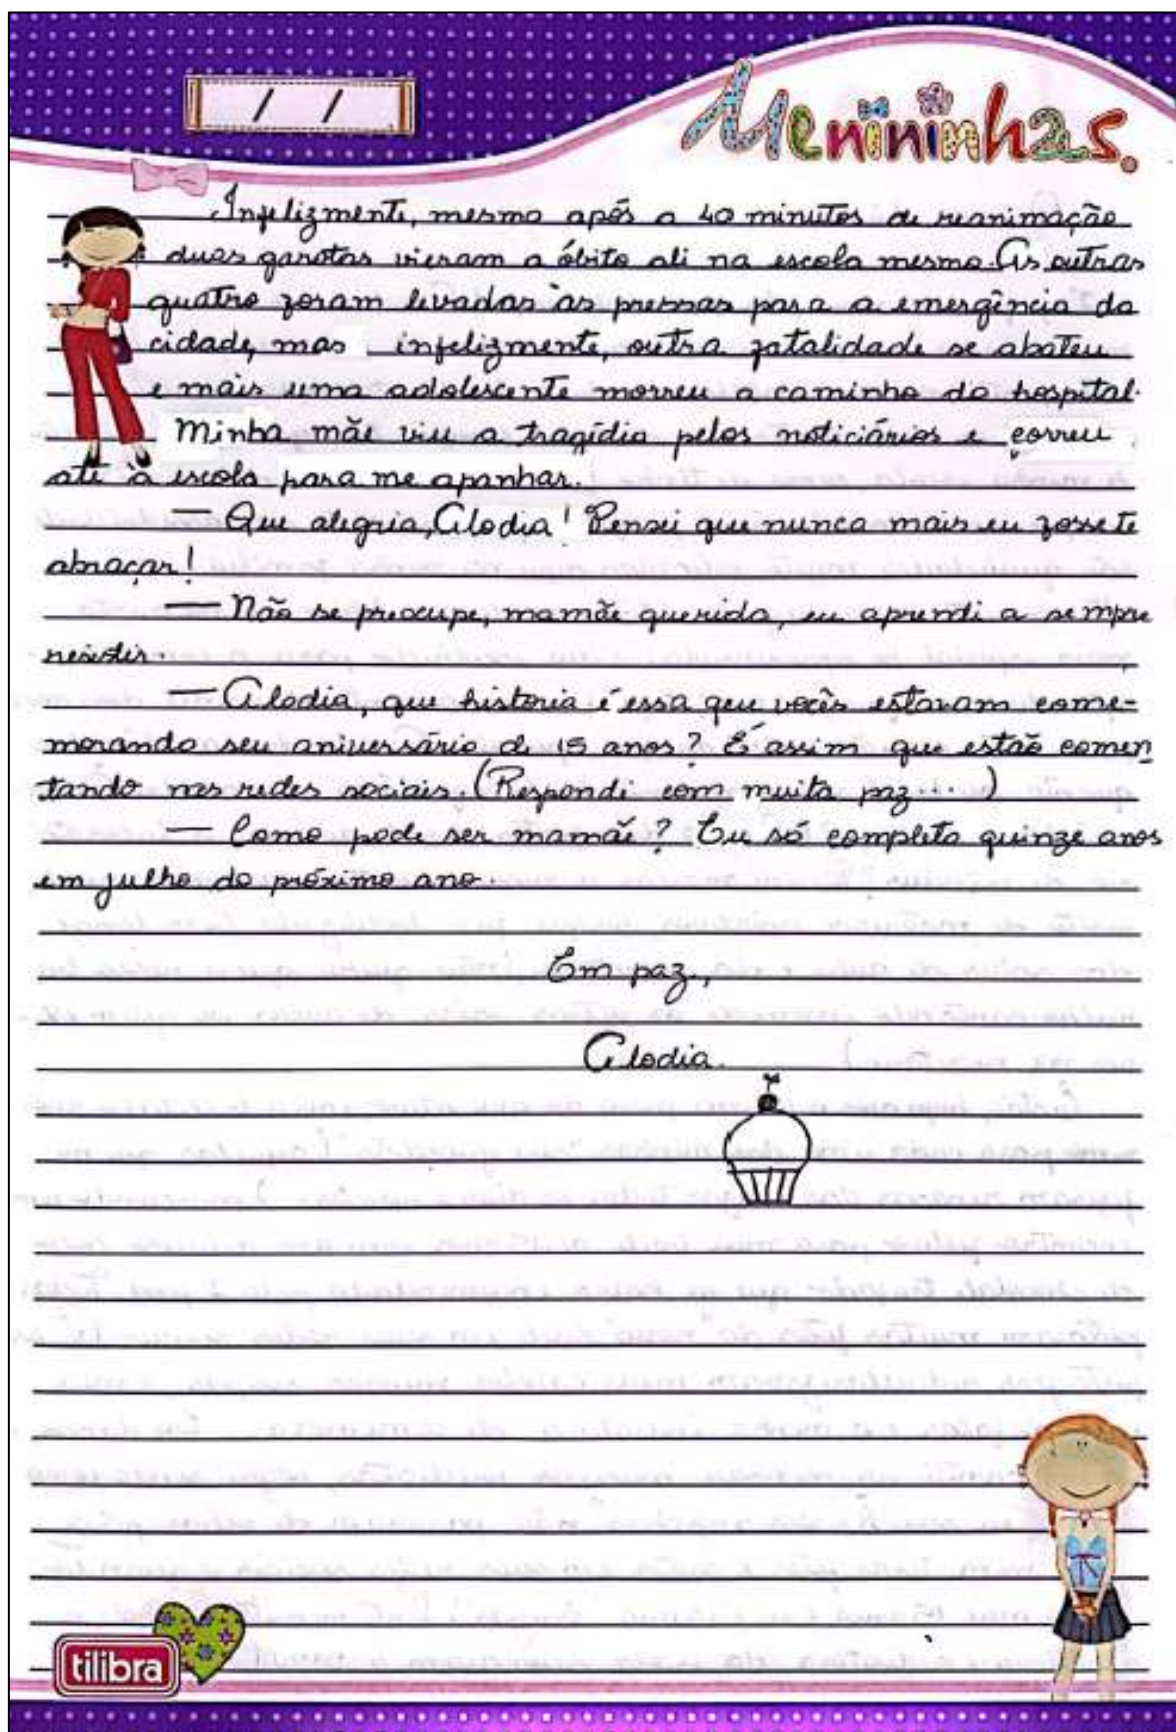 / /
Menininhas.
Infelizmente, mesmo após a 40 minutos de reanimação
duas garotas vieram a óbito ali na escola mesmo. As outras
quatro foram levadas às pressas para a emergência da
cidade, mas infelizmente, outra fatalidade se abateu
e mais uma adolescente morreu a caminho do hospital.
Minha mãe viu a tragédia pelos noticiários e correu
até à escola para me apanhar.
— Que alegria, Alodia! Pensei que nunca mais eu fosse te
abraçar!
— Não se preocupe, mamãe querida, eu aprendi a sempre
resistir.
— Alodia, que historia é essa que vocês estavam come-
morando seu aniversário de 15 anos? É assim que estão comen
tando nas redes sociais. (Respondi com muita paz...)
— Como pode ser mamãe? Eu só completo quinze anos
em julho do próximo ano.
Em paz,
Alodia.
tilibra